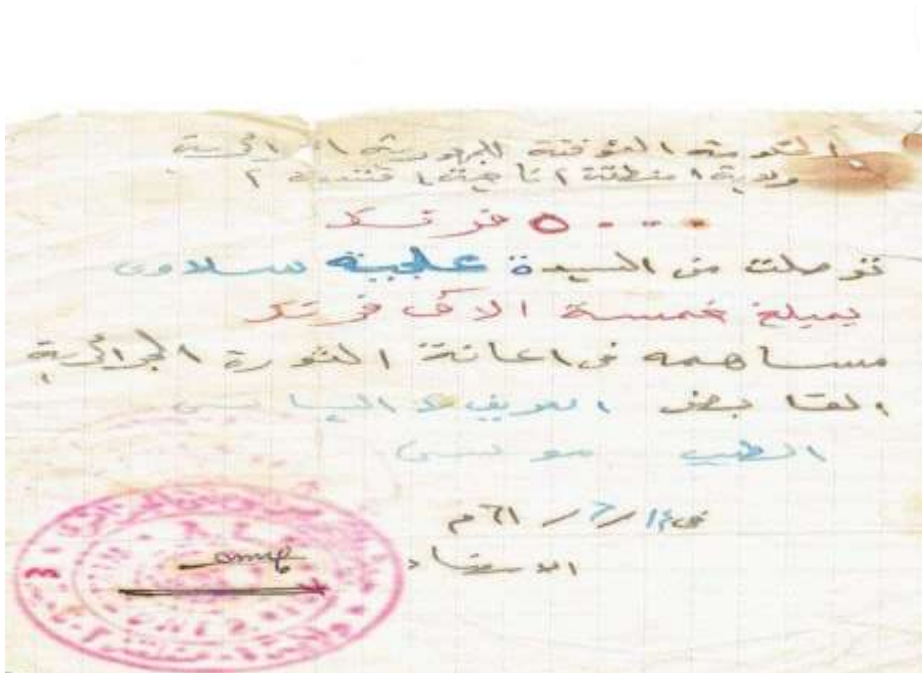 الحكومة المؤقتة للجمهورية الجزائرية
ولاية ١ منطقة ٢ ناحية ١ قسمة ٢
٥٠٠٠ فرنك
توصلت من السيدة علجية سلاوي
بمبلغ خمسة الاف فرنك
مساهمه في اعانة الثورة الجزائرية
القابض العريف السياسي
الطيب موسى
في / ٦ / ٦١ م
الامضاء